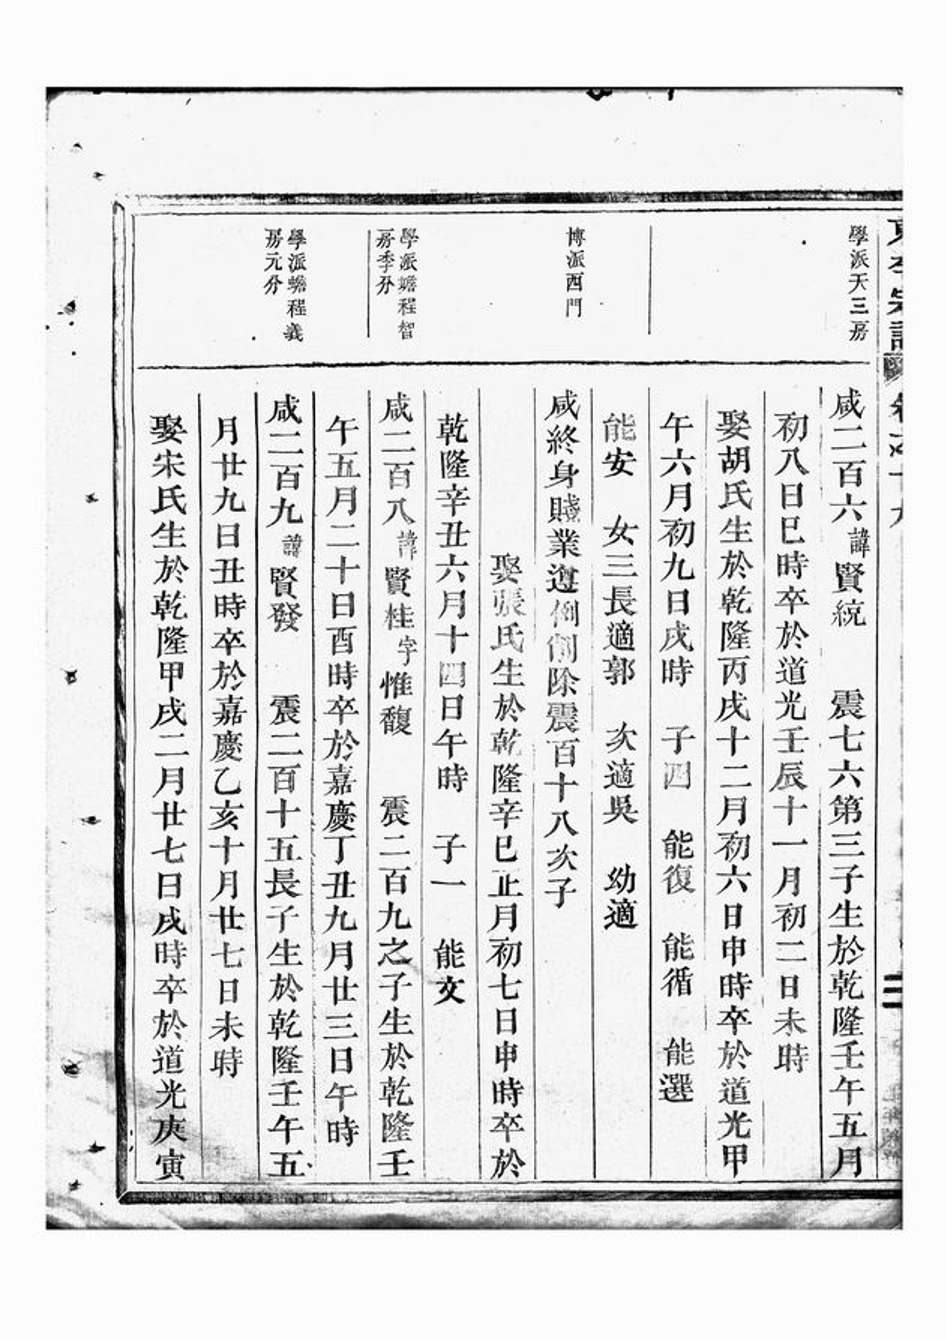 學派天三房
咸二百六諱賢統 震七六第三子生於乾隆壬午五月
初八日巳時卒於道光壬辰十一月初二日未時
娶胡氏生於乾隆丙戌十二月初六日申時卒於道光甲
午六月初九日戌時 子四 能復 能循 能選
能安 女三長適郭 次適吳 幼適
博派西門
咸終身賤業遵例削除震百十八次子
娶張氏生於乾隆辛巳正月初七日申時卒於
乾隆辛丑六月十四日午時 子一 能文
學派蟾程智
房季分
咸二百八諱賢桂字惟馥 震二百九之子生於乾隆壬
午五月二十日酉時卒於嘉慶丁丑九月廿三日午時
學派蟾程義
房元分
咸二百九諱賢發 震二百十五長子生於乾隆壬午五
月廿九日丑時卒於嘉慶乙亥十月廿七日未時
娶宋氏生於乾隆甲戌二月廿七日戌時卒於道光庚寅